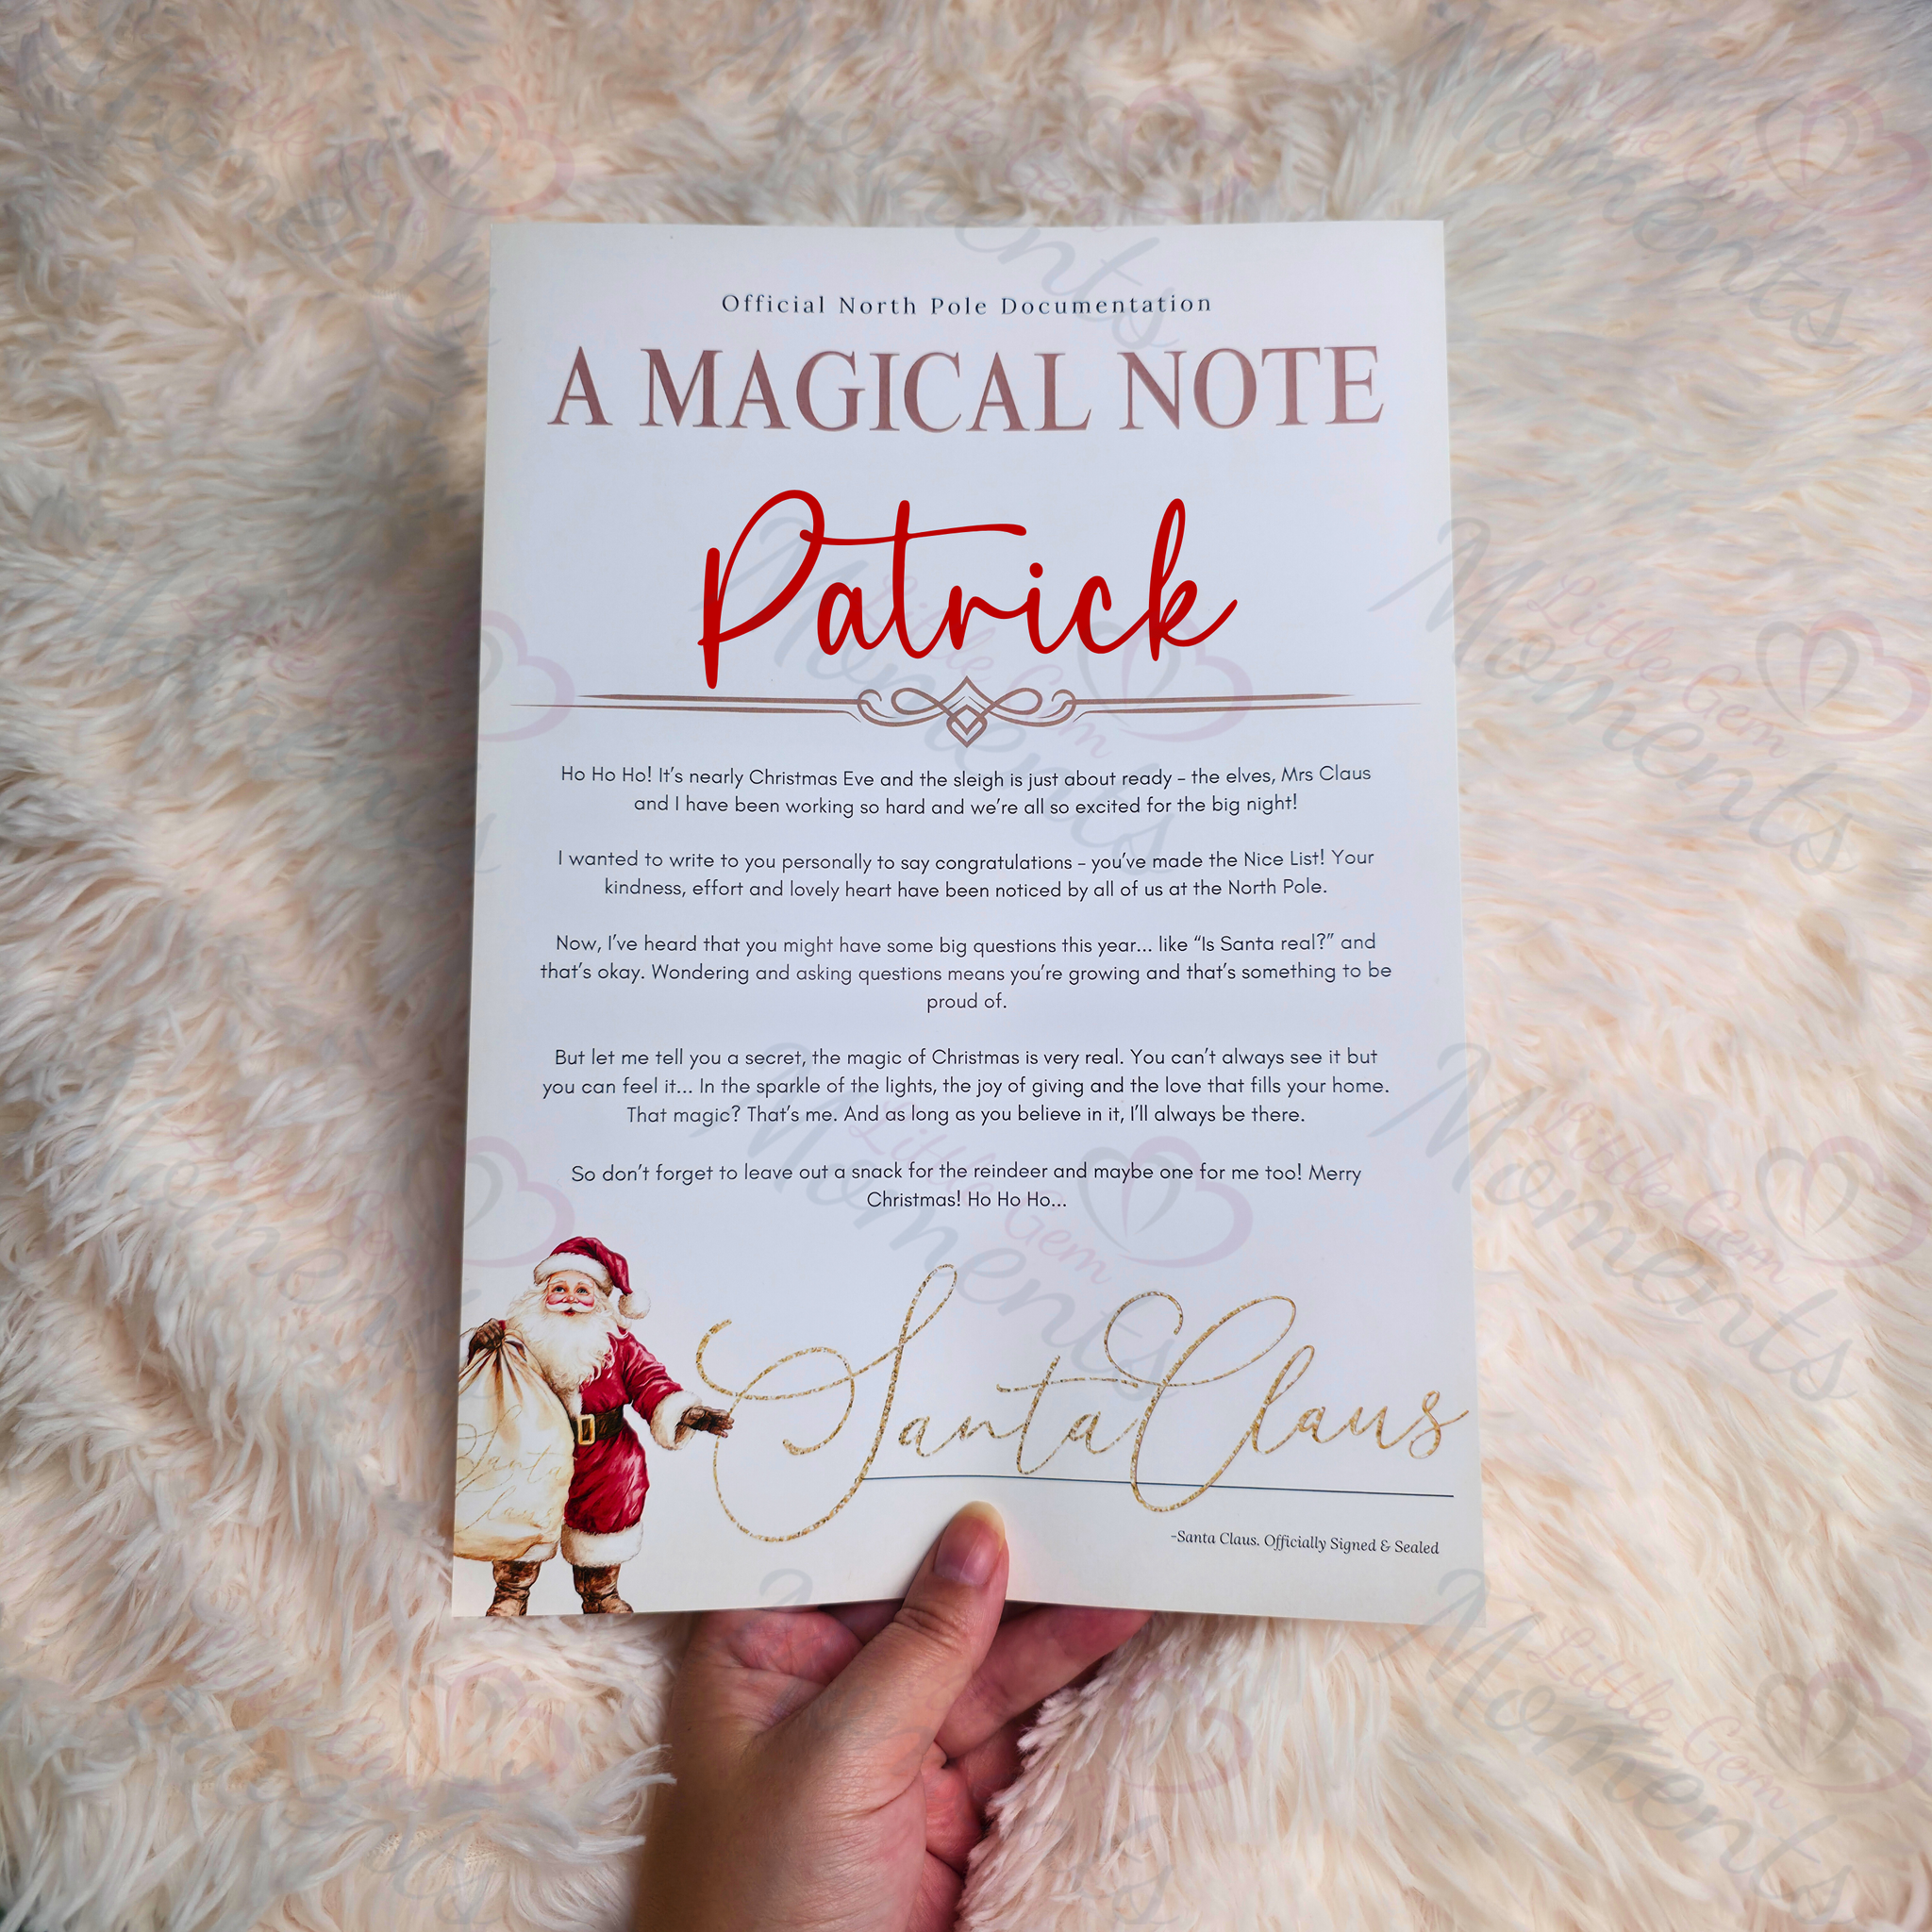 Official North Pole Documentation
A MAGICAL NOTE
Patrick
Ho Ho Ho! It's nearly Christmas Eve and the sleigh is just about ready – the elves, Mrs Claus
and I have been working so hard and we're all so excited for the big night!
I wanted to write to you personally to say congratulations – you've made the Nice List! Your
kindness, effort and lovely heart have been noticed by all of us at the North Pole.
Now, I've heard that you might have some big questions this year... like “Is Santa real?” and
that's okay. Wondering and asking questions means you're growing and that's something to be
proud of.
But let me tell you a secret, the magic of Christmas is very real. You can't always see it but
you can feel it... In the sparkle of the lights, the joy of giving and the love that fills your home.
That magic? That's me. And as long as you believe in it, I'll always be there.
So don't forget to leave out a snack for the reindeer and maybe one for me too! Merry
Christmas! Ho Ho Ho...
Santa Claus
Santa
Claus
-Santa Claus. Officially Signed & Sealed
Little Gem
Moments